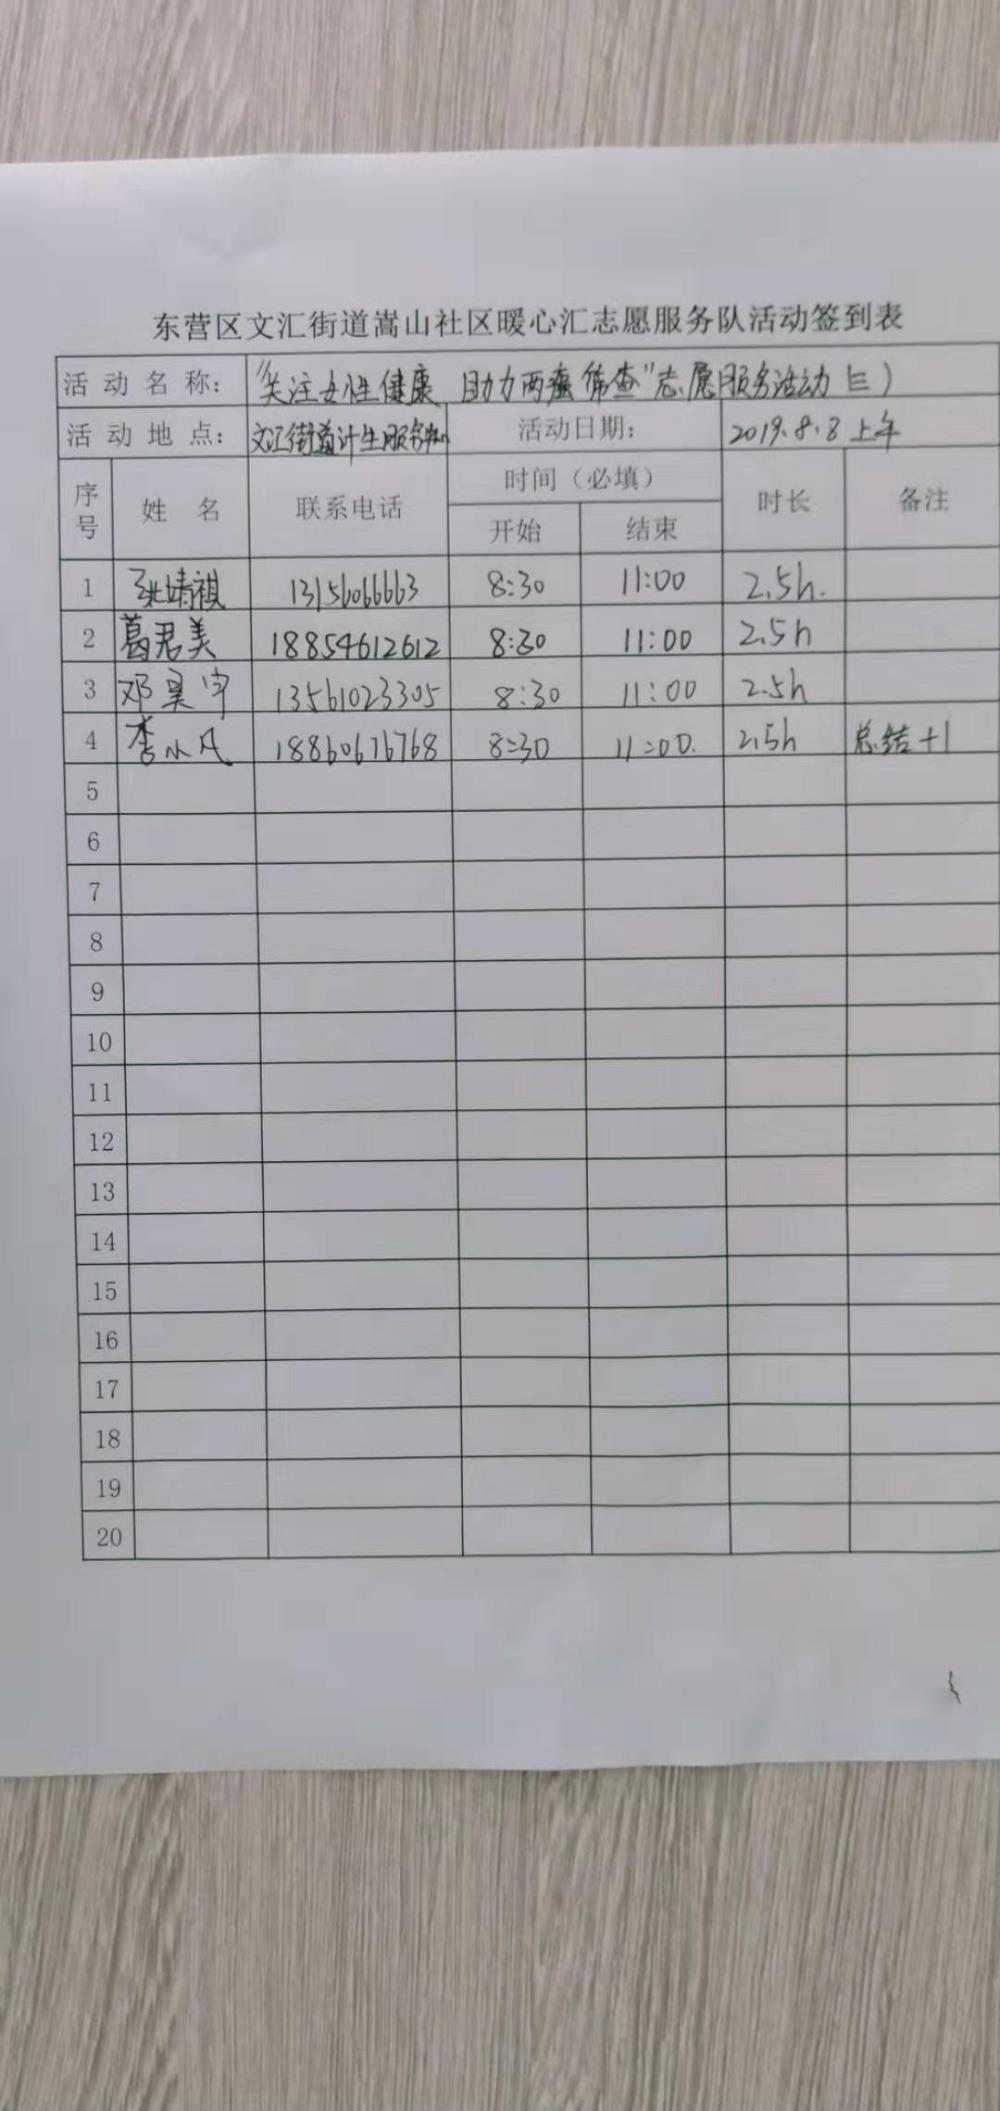 东营区文汇街道嵩山社区暖心汇志愿服务队活动签到表
活动名称: "关注女性健康 助力两癌筛查"志愿服务活动(三)
活动地点: 文汇街道计生服务 活动日期: 2019.8.8 上午
序号 姓名 联系电话 时间（必填） 时长 备注
开始 结束
1 张婧祺 13156066663 8:30 11:00 2.5h.
2 葛君美 18854612612 8:30 11:00 2.5h
3 邓昊宇 13561023305 8:30 11:00 2.5h
4 李小凡 18860676768 8:30 11:00. 2.5h 总结+1
5
6
7
8
9
10
11
12
13
14
15
16
17
18
19
20